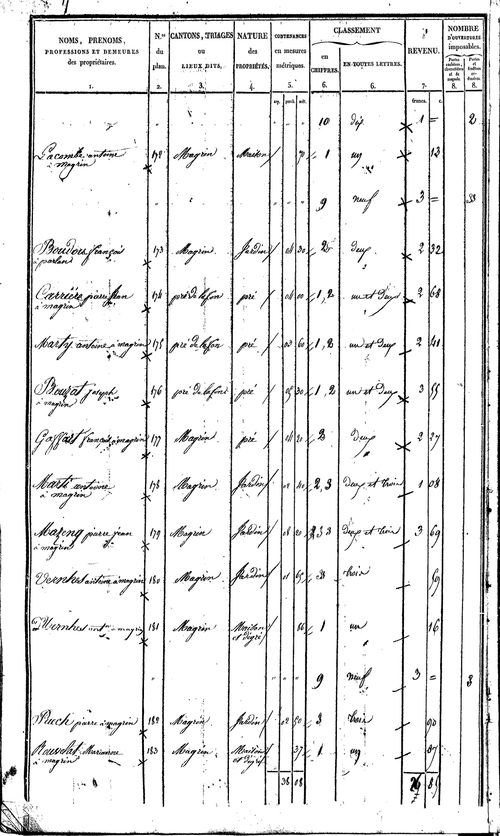 NOMS, PRENOMS, PROFESSIONS ET DEMEURES des propriétaires. | N.os du plan. | CANTONS, TRIAGES ou LIEUX DITS. | NATURE des PROPRIÉTÉS. | CONTENANCES en mesures métriques. | CLASSEMENT en CHIFFRES. | EN TOUTES LETTRES. | REVENU. | NOMBRE D'OUVERTURES imposables.
1. 2. 3. 4. 5. 6. 6. 7. 8. 8.
francs. c.
10 dix 1 = 2
Lacombe antoine 172 Magrin Maison 70 1 un 12
à magrin
9 neuf 3 =
Boudou françois 173 Magrin Jardin 04 30 2 deux 2 32
à parlan
Carrière pierre jean 174 pré de lafon pré 04 00 1, 2 un et deux 2 68
à magrin
Marty antoine à magrin 175 pré de lafon pré 03 60 1, 2 un et deux 2 41
Bouzat joseph 176 pré de lafon pré 05 30 1, 2 un et deux 3 55
à magrin
Gaffart françois à magrin 177 Magrin pré 04 20 2 deux 2 27
Marti antoine 178 Magrin Jardin 02 40 2, 3 deux et trois 1 08
à magrin
Mazenq pierre jean 179 Magrin Jardin 08 20 2 3 deux et trois 3 69
à magrin
antoine à magrin 180 Magrin Jardin 01 65 3 trois 59
à magrin 181 Magrin Maison et dégré 86 1 un 16
9 neuf 3 = 3
Puech pierre à magrin 182 Magrin Jardin 02 50 3 trois 90
Marianne 183 Magrin Maison et dégré 37 1 un 07
à magrin
38 08 26 85